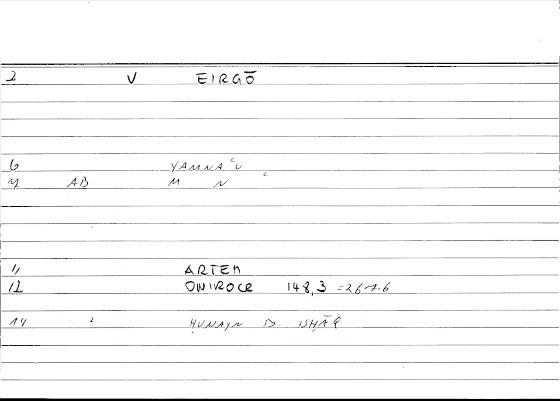 2 V EIRGŌ
6 YAMNAʿU
7 AB M N ʿ
11 ARTEM
12 ONIROCR 148,3 =267.6
14 2 ḤUNAYN B. ISḤĀQ